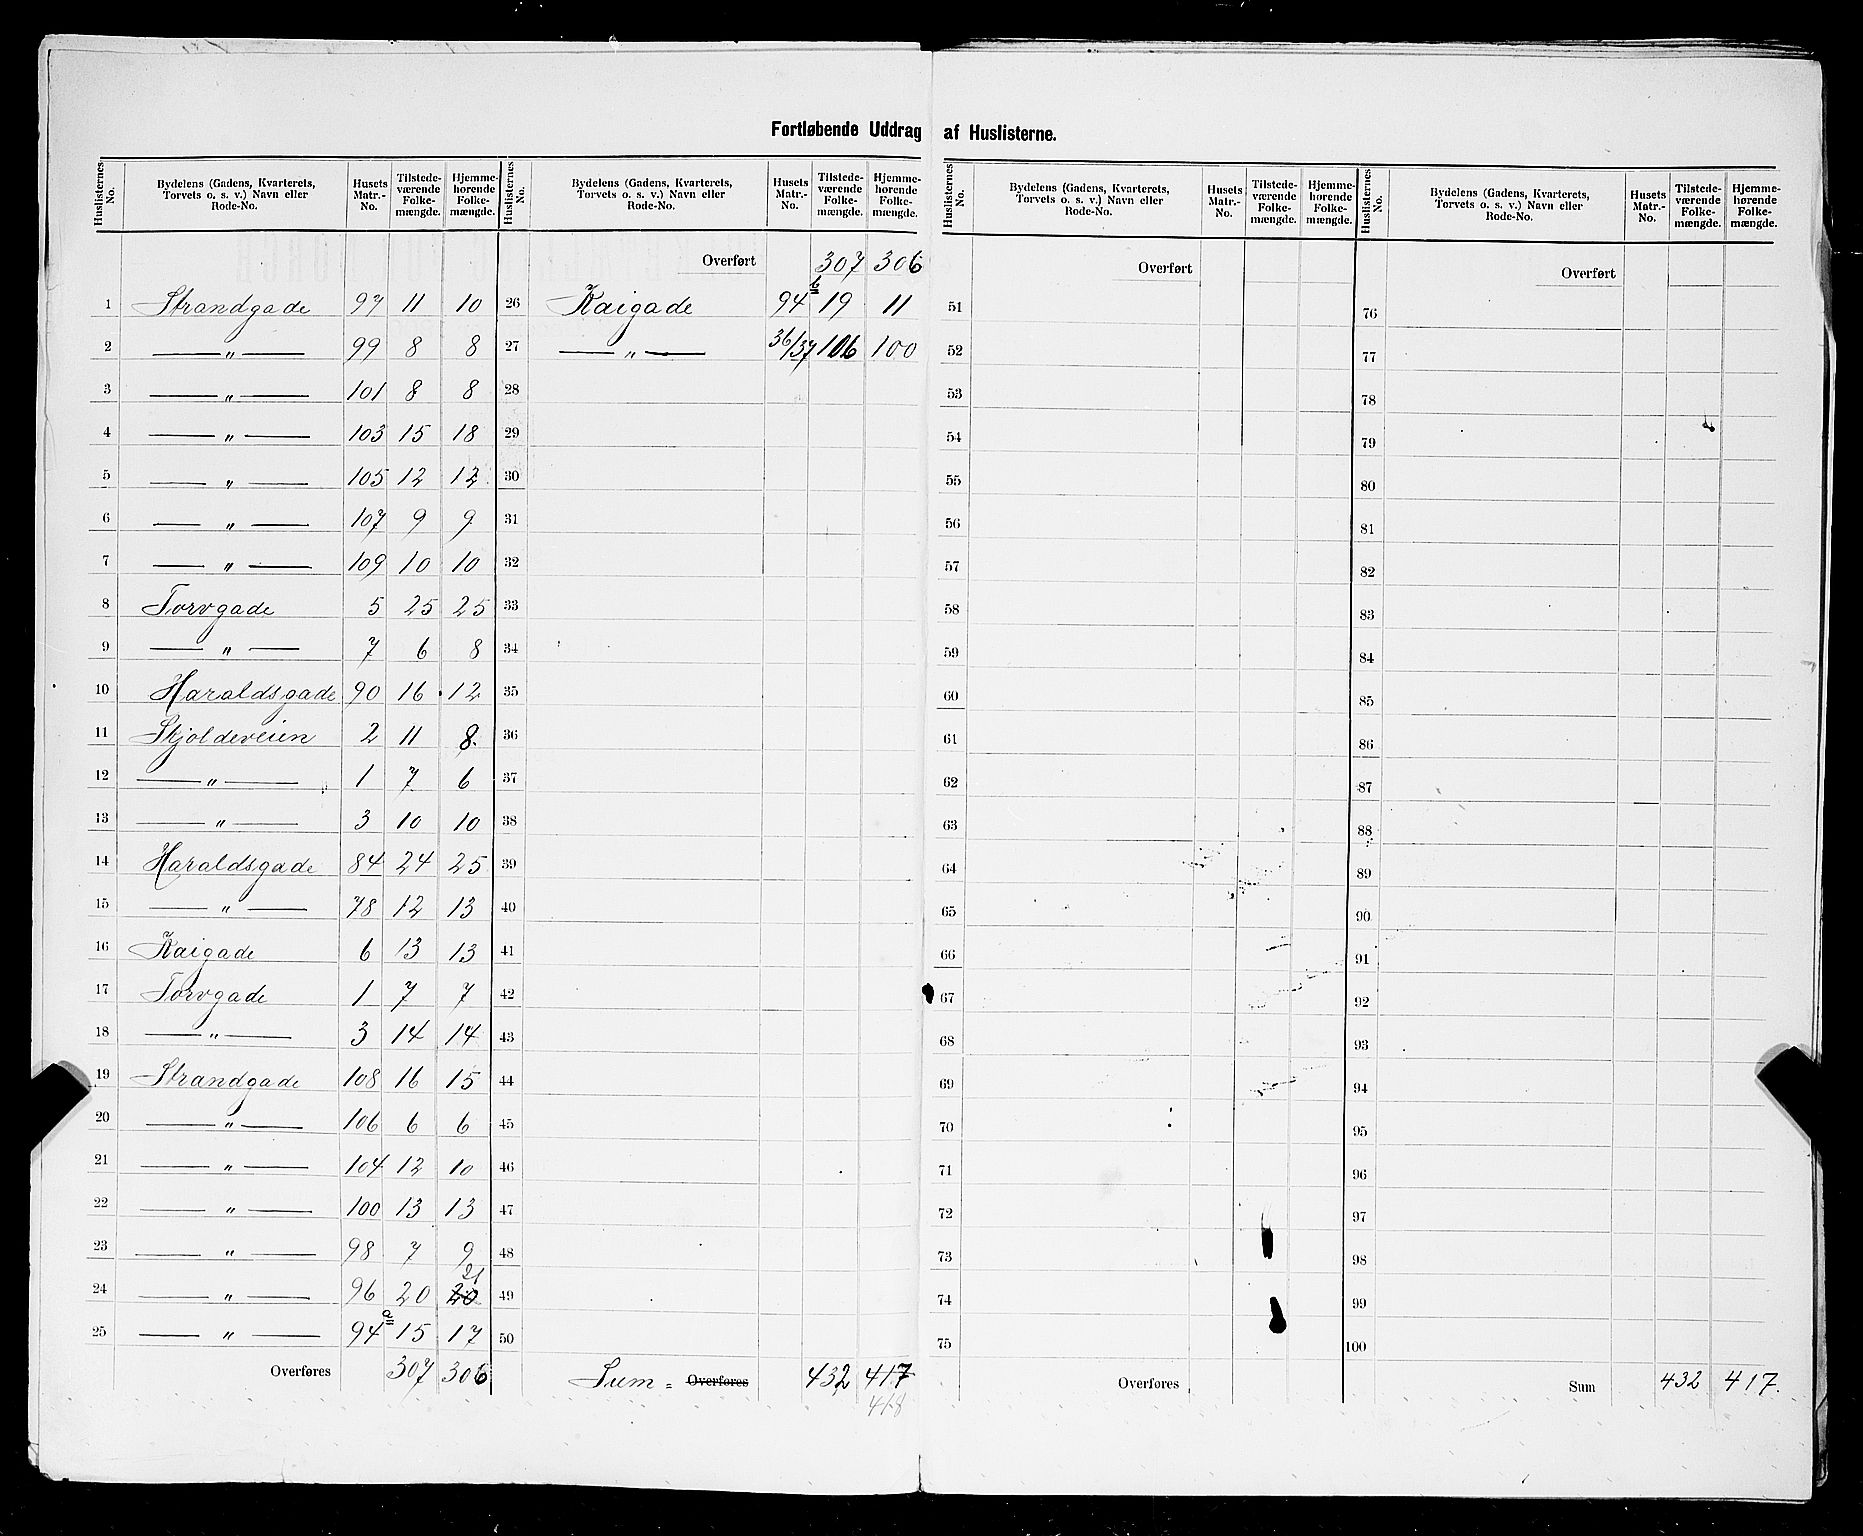 Fortløbende Uddrag af Huslisterne.
Huslisternes No. | Bydelens (Gadens, Kvarterets, Torvets o. s. v.) Navn eller Rode-No. | Husets Matr.-No. | Tilstedeværende Folkemængde. | Hjemmehørende Folkemængde.
1 Strandgade 97 11 10
2 — „ — 99 8 8
3 — „ — 101 8 8
4 — „ — 103 15 18
5 — „ — 105 12 12
6 — „ — 107 9 9
7 — „ — 109 10 10
8 Torvgade 5 25 25
9 — „ — 7 6 8
10 Haraldsgade 90 16 12
11 Skjoldeveien 2 11 8
12 — „ — 1 7 6
13 — „ — 3 10 10
14 Haraldsgade 84 24 25
15 — „ — 78 12 13
16 Kaigade 6 13 13
17 Torvgade 1 7 7
18 — „ — 3 14 14
19 Strandgade 108 16 15
20 — „ — 106 6 6
21 — „ — 104 12 10
22 — „ — 100 13 13
23 — „ — 98 7 9
24 — „ — 96 20 20 21
25 — „ — 94 a 15 17
Overføres 307 306
Huslisternes No. | Bydelens (Gadens, Kvarterets, Torvets o. s. v.) Navn eller Rode-No. | Husets Matr.-No. | Tilstedeværende Folkemængde. | Hjemmehørende Folkemængde.
Overført 307 306
26 Kaigade 94 b 19 11
27 — „ — 36/37 106 100
28
29
30
31
32
33
34
35
36
37
38
39
40
41
42
43
44
45
46
47
48
49
50
Sum = Overføres 432 417
418
Huslisternes No. | Bydelens (Gadens, Kvarterets, Torvets o. s. v.) Navn eller Rode-No. | Husets Matr.-No. | Tilstedeværende Folkemængde. | Hjemmehørende Folkemængde.
Overført
51
52
53
54
55
56
57
58
59
60
61
62
63
64
65
66
67
68
69
70
71
72
73
74
75
Overføres
Huslisternes No. | Bydelens (Gadens, Kvarterets, Torvets o. s. v.) Navn eller Rode-No. | Husets Matr.-No. | Tilstedeværende Folkemængde. | Hjemmehørende Folkemængde.
Overført
76
77
78
79
80
81
82
83
84
85
86
87
88
89
90
91
92
93
94
95
96
97
98
99
100
Sum 432 417.